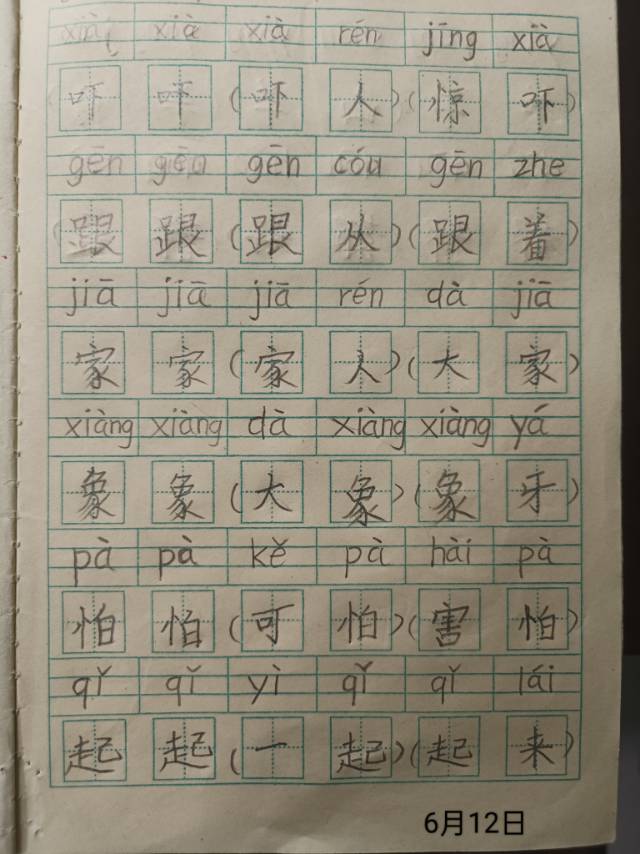 xià xià xià rén jīng xià
吓 吓 (吓 人) (惊 吓)
gēn gēn gēn cóu gēn zhe
跟 跟 (跟 从) (跟 着)
jiā jiā jiā rén dà jiā
家 家 (家 人) (大 家)
xiàng xiàng dà xiàng xiàng yá
象 象 (大 象) (象 牙)
pà pà kě pà hài pà
怕 怕 (可 怕) (害 怕)
qǐ qǐ yì qǐ qǐ lái
起 起 (一 起) (起 来)
6月12日